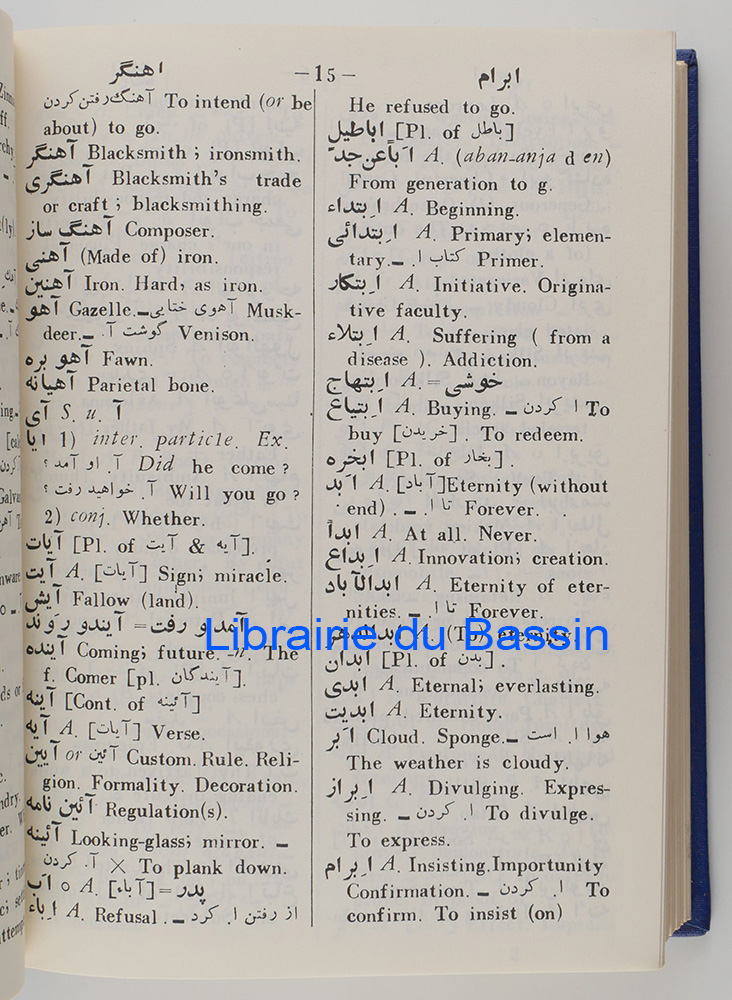 اهنگر
-15-
ابرام
آهنگ رفتن کردن To intend (or be
about) to go.
آهنگر Blacksmith ; ironsmith.
آهنگری Blacksmith's trade
or craft ; blacksmithing.
آهنگ ساز Composer.
آهنی (Made of) iron.
آهنین Iron. Hard, as iron.
آهو Gazelle.ـ آهوی ختایی Musk-
deer.ـ گوشت آ. Venison.
آهو بره Fawn.
آهیانه Parietal bone.
آی S. u. آ
ایا 1) inter. particle. Ex.
آ. او آمد ؟ Did he come ?
آ. خواهید رفت ؟ Will you go ?
2) conj. Whether.
آیات [Pl. of آیت & آیه].
آیت A. [آیات] Sign; miracle.
آیش Fallow (land).
آیندو روند =آمد و رفت
آینده Coming; future. -n. The
f. Comer [pl. آیندگان].
آینه [Cont. of آئینه]
آیه A. [آیات] Verse.
آیین or آئین Custom. Rule. Reli-
gion. Formality. Decoration.
آئین نامه Regulation(s).
آئینه Looking-glass; mirror. ـ
آ. کردن × To plank down.
اب o A. [آباء] =پدر
اباء A. Refusal .ـ از رفتن ا. کرد
He refused to go.
اباطیل [Pl. of باطل]
اباً عن جدّ A. (aban-anja d en)
From generation to g.
ابتداء A. Beginning.
ابتدائی A. Primary; elemen-
tary.ـ کتاب ا. Primer.
ابتکار A. Initiative. Origina-
tive faculty.
ابتلاء A. Suffering ( from a
disease ). Addiction.
ابتهاج A. =خوشی
ابتیاع A. Buying. ـ ا. کردن To
buy [خریدن] . To redeem.
ابخره [Pl. of بخار] .
ابد A. [آباد]Eternity (without
end) . ـ تا ا. Forever.
ابداً A. At all. Never.
ابداع A. Innovation; creation.
ابدالآباد A. Eternity of eter-
nities. ـ تا ا. Forever.
ابدالدهر A. (To) eternity.
ابدان [Pl. of بدن] .
ابدی A. Eternal; everlasting.
ابدیت A. Eternity.
ابر Cloud. Sponge.ـ هوا ا. است
The weather is cloudy.
ابراز A. Divulging. Expres-
sing. ـ ا. کردن To divulge.
To express.
ابرام A. Insisting.Importunity
Confirmation. ـ ا. کردن To
confirm. To insist (on)
Librairie du Bassin